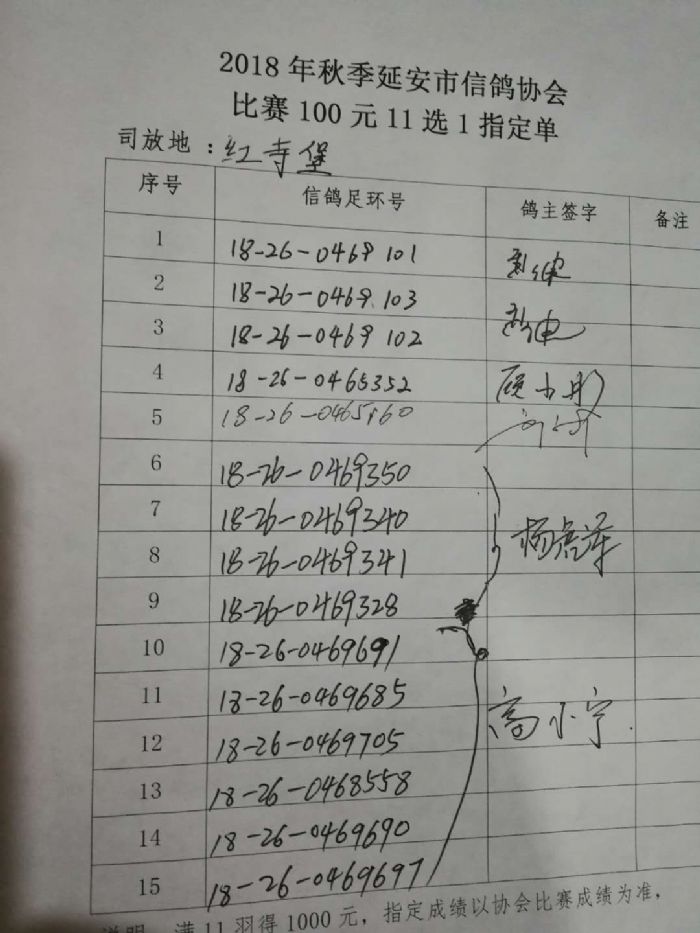 2018 年秋季延安市信鸽协会
比赛 100 元 11 选 1 指定单
司放地 ：红寺堡
序号 信鸽足环号 鸽主签字 备注
1 18-26-0469 101
2 18-26-0469.103
3 18-26-0469 102
4 18-26-0465352
5 18-26-0465160
6 18-26-0469350
7 18-26-0469340
8 18-26-0469341
9 18-26-0469328
10 18-26-0469691
11 18-26-0469685
12 18-26-0469705 高小宁
13 18-26-0468558
14 18-26-0469690
15 18-26-0469697
说明：满 11 羽得 1000 元，指定成绩以协会比赛成绩为准，